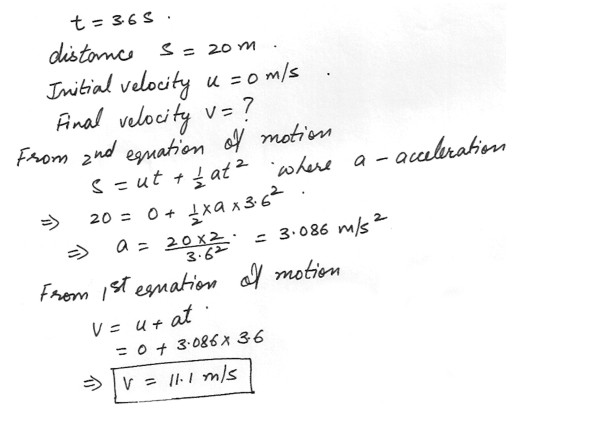 t = 3.6 S .
distance S = 20 m .
Initial velocity u = 0 m/s .
Final velocity v = ?
From 2nd equation of motion
S = ut + 1/2 at² where a - acceleration
⇒ 20 = 0 + 1/2 x a x 3.6² .
⇒ a = 20 x 2 / 3.6² = 3.086 m/s²
From 1st equation of motion
V = u + at
= 0 + 3.086 x 3.6
⇒ V = 11.1 m/s